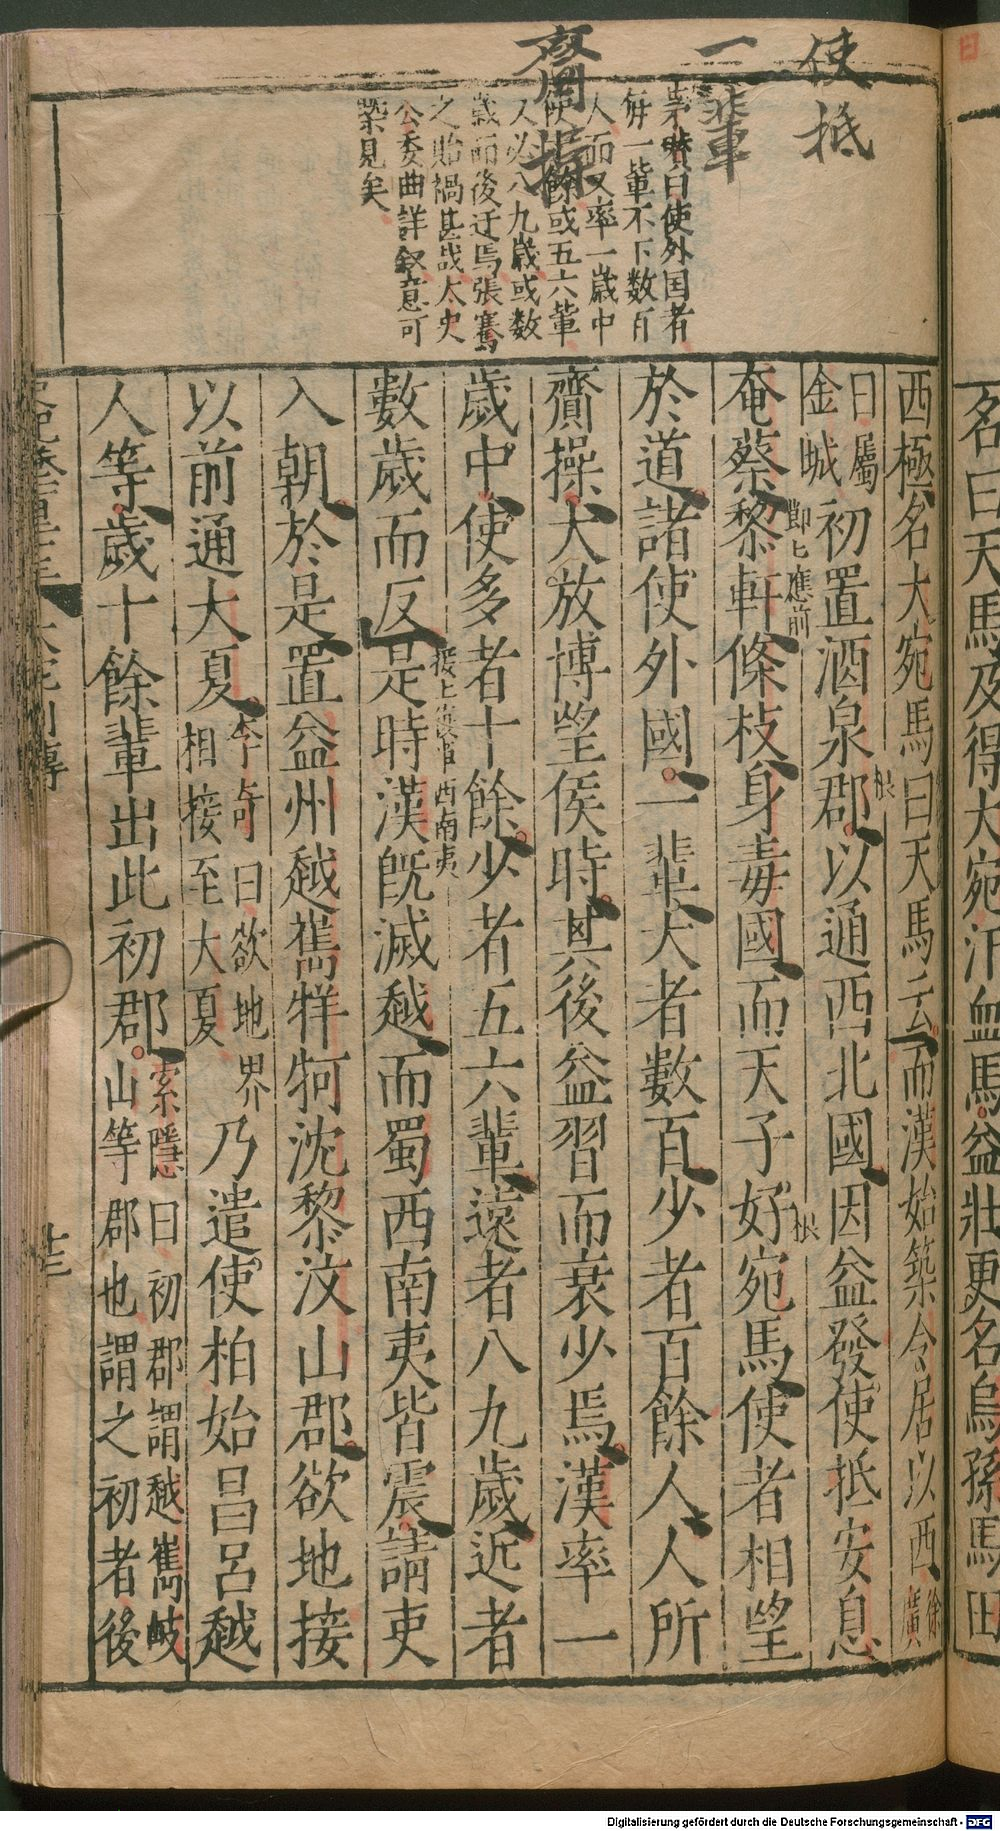 使抵
一
輩
齎操
賛曰使外国者
每一輩不下数百
人而又率一歲中
使十餘或五六輩
又必八九歲或数
歲而後迁焉張騫
之貽禍甚哉太史
公委曲詳叙意可
槩見矣
名曰天馬及得大宛汗血馬益壯更名烏孫馬曰
西極名大宛馬曰天馬云而漢始築令居以西徐廣
曰屬金城初置酒泉郡以通西北國因益發使抵安息
奄蔡黎軒條枝身毒國而天子好宛馬使者相望
於道諸使外國一輩大者數百少者百餘人人所
齎操大放博望侯時其後益習而衰少焉漢率一
歲中使多者十餘少者五六輩遠者八九歲近者
數歲而反是時漢既滅越而蜀西南夷皆震請吏
入朝於是置益州越嶲牂牁沈黎汶山郡欲地接
以前通大夏李奇曰欲地界相接至大夏乃遣使柏始昌呂越
人等歲十餘輩出此初郡索隱曰初郡謂越嶲岐山等郡也謂之初者後
Digitalisierung gefördert durch die Deutsche Forschungsgemeinschaft - DFG